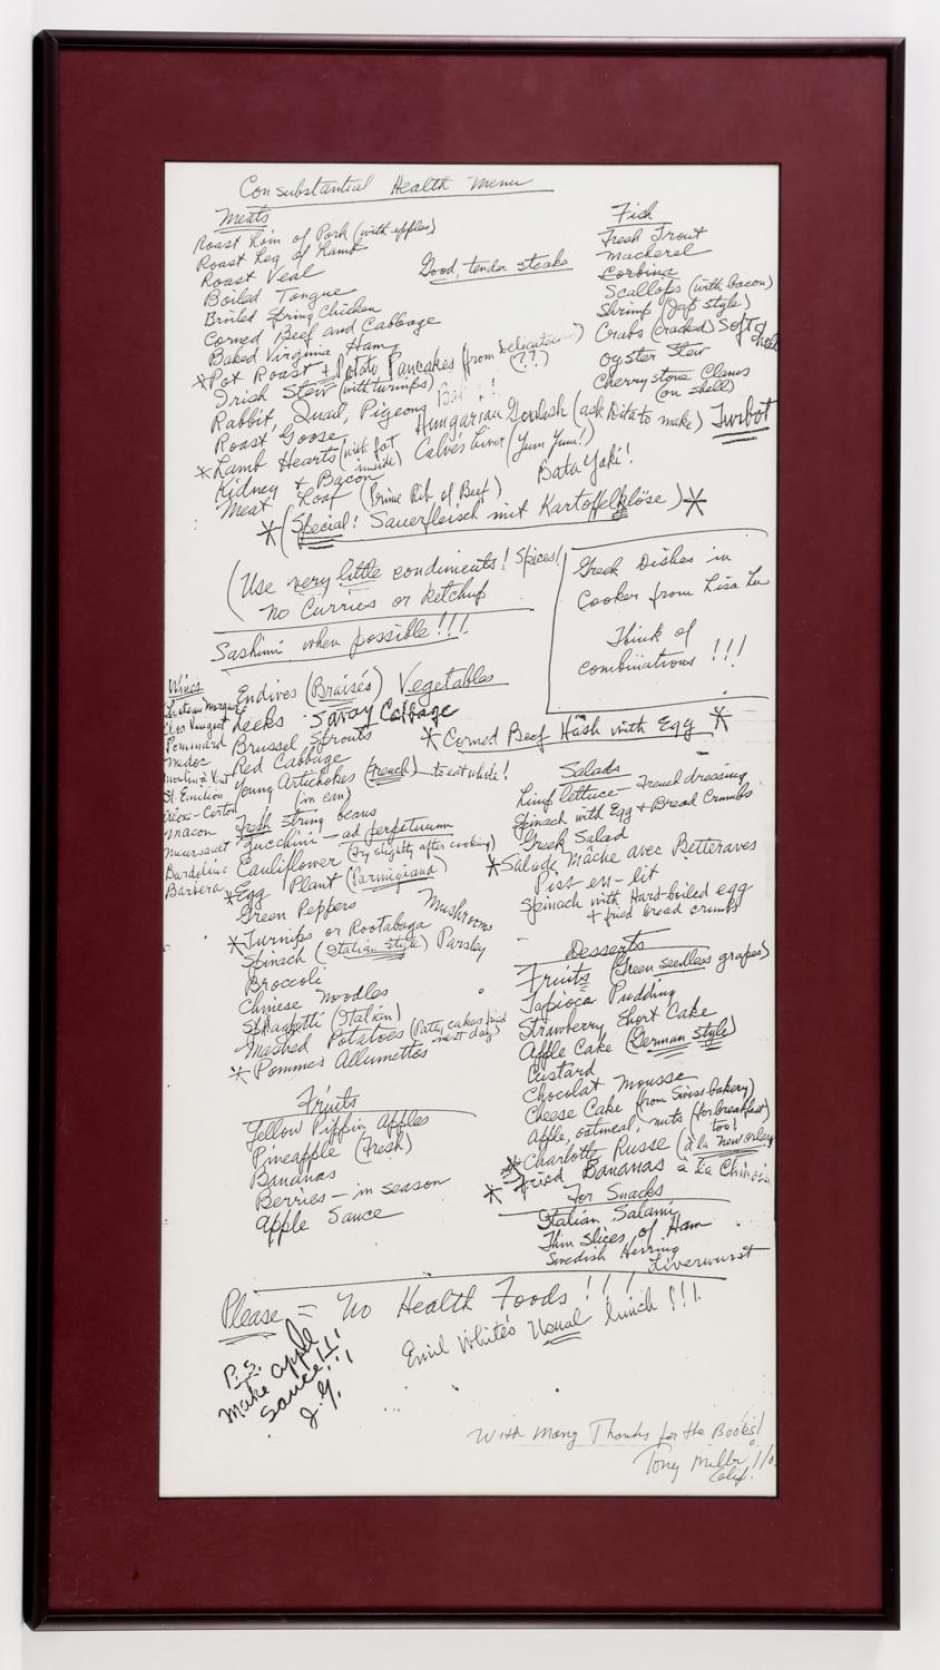 Consubstantial Health Menu
Meats
Roast Loin of Pork (with apples)
Roast Leg of Lamb
Roast Veal
Boiled Tongue
Broiled Spring Chicken
Corned Beef and Cabbage
Baked Virginia Ham
*Pot Roast + Potato Pancakes (from Delicatessen) (??)
Irish Stew (with turnips)
Rabbit, Quail, Pigeons
Roast Goose
Hungarian Goulash (ask to make)
*Lamb Hearts (with fat inside)
Calves Liver (Yum Yum!)
Kidney + Bacon
Bata Yaki!
Meat Loaf (Prime Rib of Beef)
*(Special: Sauerfleisch mit Kartoffelklöse)*
Good, tender steaks
Fish
Fresh Trout
Mackerel
Corbina
Scallops (with bacon)
Shrimp (Jap style)
Crabs (cracked) Soft
Oyster Stew
Cherrystone Clams
(on shell)
Turbot
(Use very little condiments! Spices!
No Curries or Ketchup
Sashimi when possible!!!
Greek Dishes in
Cooker from Lisa Lu
Think of
combinations!!!
Wines
Chateau Margaux
Clos Vougeot
Pommard
Medoc
Moulin à Vent
St. Emilion
Aloxe-Corton
Macon
Meursault
Bardolino
Barbera
Vegetables
Endives (Braisés)
Leeks Savoy Cabbage
Brussel Sprouts
Red Cabbage
Young Artichokes (French) - to eat whole!
(in can)
Fresh String beans
Zucchini - ad perpetuum
Cauliflower (Fry slightly after cooking)
*Egg Plant (Parmigiana)
Green Peppers
Mushrooms
*Turnips or Rootabaga
Spinach (Italian style) Parsley
Broccoli
Chinese Noodles
Spaghetti (Italian)
Mashed Potatoes (Patty cakes fried next day)
*Pommes Allumettes
*Corned Beef Hash with Egg*
Salads
Limp lettuce - French dressing
Spinach with Egg + Bread Crumbs
Greek Salad
*Salade Mache avec Betteraves
Piss-en-lit
Spinach with Hard-boiled egg
+ fried bread crumbs
Desserts
Fruits (Green seedless grapes)
Tapioca Pudding
Strawberry Short Cake
Apple Cake (German style)
Custard
Chocolat Mousse
Cheese Cake (from Swiss bakery)
Apple, oatmeal, nuts (for breakfast)
too!
*Charlotte Russe (à la New Orleans
*Fried Bananas à la Chinois
Fruits
Yellow Pippin Apples
Pineapple (Fresh)
Bananas
Berries - in season
Apple Sauce
For Snacks
Italian Salami
Thin slices of Ham
Swedish Herring
Liverwurst
Please = No Health Foods!!!
Emil White's Usual lunch!!!
P.S.
Make apple
sauce!!!
J.Y.
With Many Thanks for the Books!
Tony Miller
Calif.